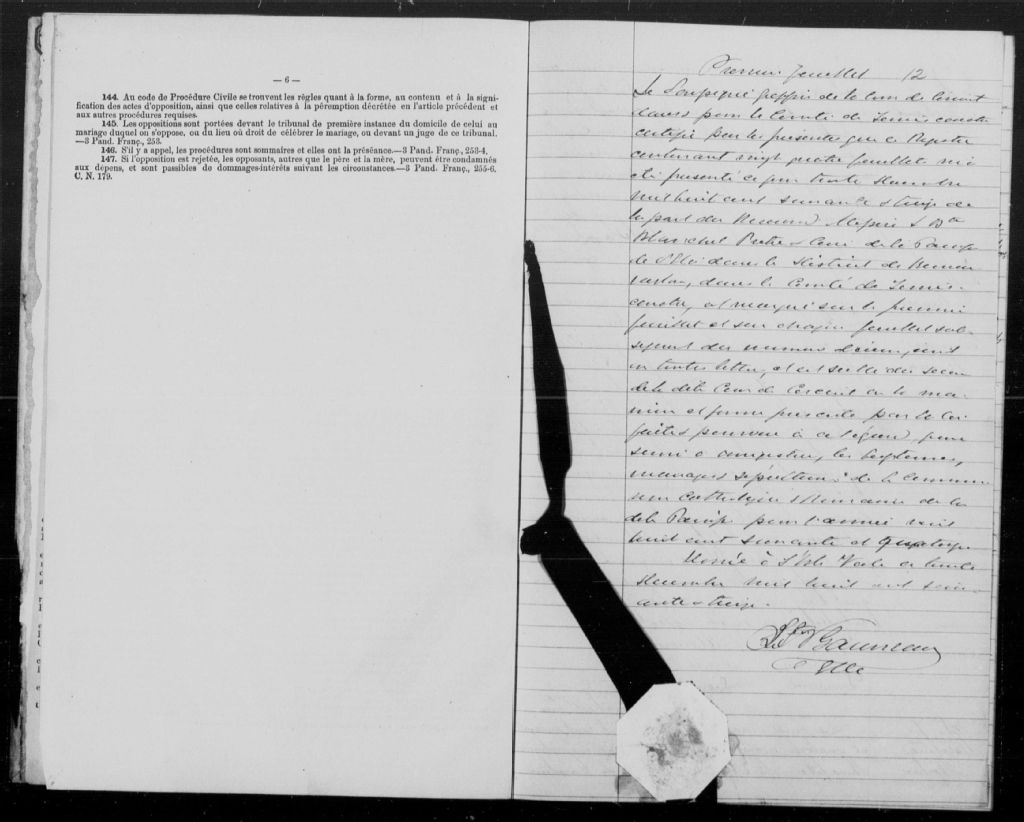 — 6 —
144. Au code de Procédure Civile se trouvent les règles quant à la forme, au contenu et à la signi-
fication des actes d'opposition, ainsi que celles relatives à la péremption décrétée en l'article précédent et
aux autres procédures requises.
145. Les oppositions sont portées devant le tribunal de première instance du domicile de celui au
mariage duquel on s'oppose, ou du lieu où droit de célébrer le mariage, ou devant un juge de ce tribunal.
—3 Pand. Franç., 253.
146. S'il y a appel, les procédures sont sommaires et elles ont la préséance.—3 Pand. Franç., 253-4.
147. Si l'opposition est rejetée, les opposants, autres que le père et la mère, peuvent être condamnés
aux dépens, et sont passibles de dommages-intérêts suivant les circonstances.—3 Pand. Franç., 255-6.
C. N. 179.
Premier feuillet 12
Le Soussigné greffier de la Cour de Circuit
dans pour le Comté de Temiscouata
certifie par les présentes que ce Registre
contenant vingt quatre feuillets m'a
été présenté ce jour trente Novembre
mil huit cent soixante & treize de
la part du Révérend Messire
Prêtre & Curé de la Paroisse
de dans le District de Kamou
raska, dans le Comté de Témis-
couata, et marqué sur le premier
feuillet et sur chaque feuillet sub
séquent du numéro
en toutes lettres, et est scellé du sceau
de la dite Cour de Circuit en la ma-
nière et forme prescrite par la loi
faite & pourvue à cet égard, pour
servir à enregistrer les baptêmes,
mariages & sépultures de la Commu
nion Catholique & Romaine de la
dite Paroisse pour l'année mil
huit cent soixante et quatorze
Donné à l'Isle Verte ce trente
Novembre mil huit cent soix-
ante & treize.